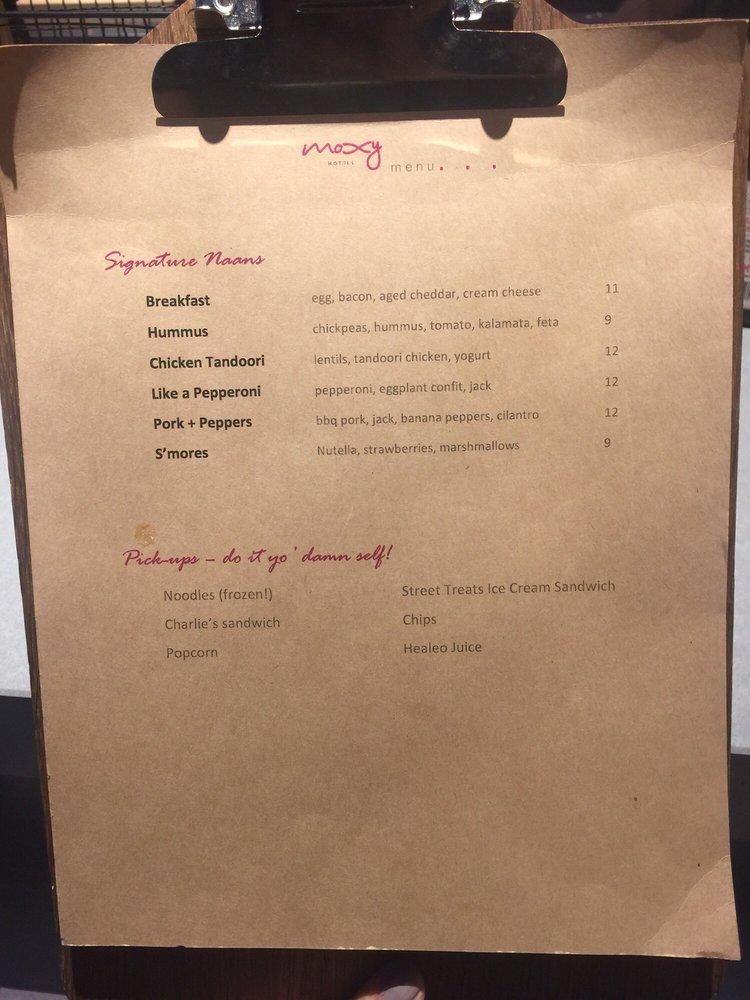 moxy
HOTELS
menu. . .
Signature Naans
Breakfast egg, bacon, aged cheddar, cream cheese 11
Hummus chickpeas, hummus, tomato, kalamata, feta 9
Chicken Tandoori lentils, tandoori chicken, yogurt 12
Like a Pepperoni pepperoni, eggplant confit, jack 12
Pork + Peppers bbq pork, jack, banana peppers, cilantro 12
S'mores Nutella, strawberries, marshmallows 9
Pick-ups – do it yo' damn self!
Noodles (frozen!) Street Treats Ice Cream Sandwich
Charlie's sandwich Chips
Popcorn Healeo Juice